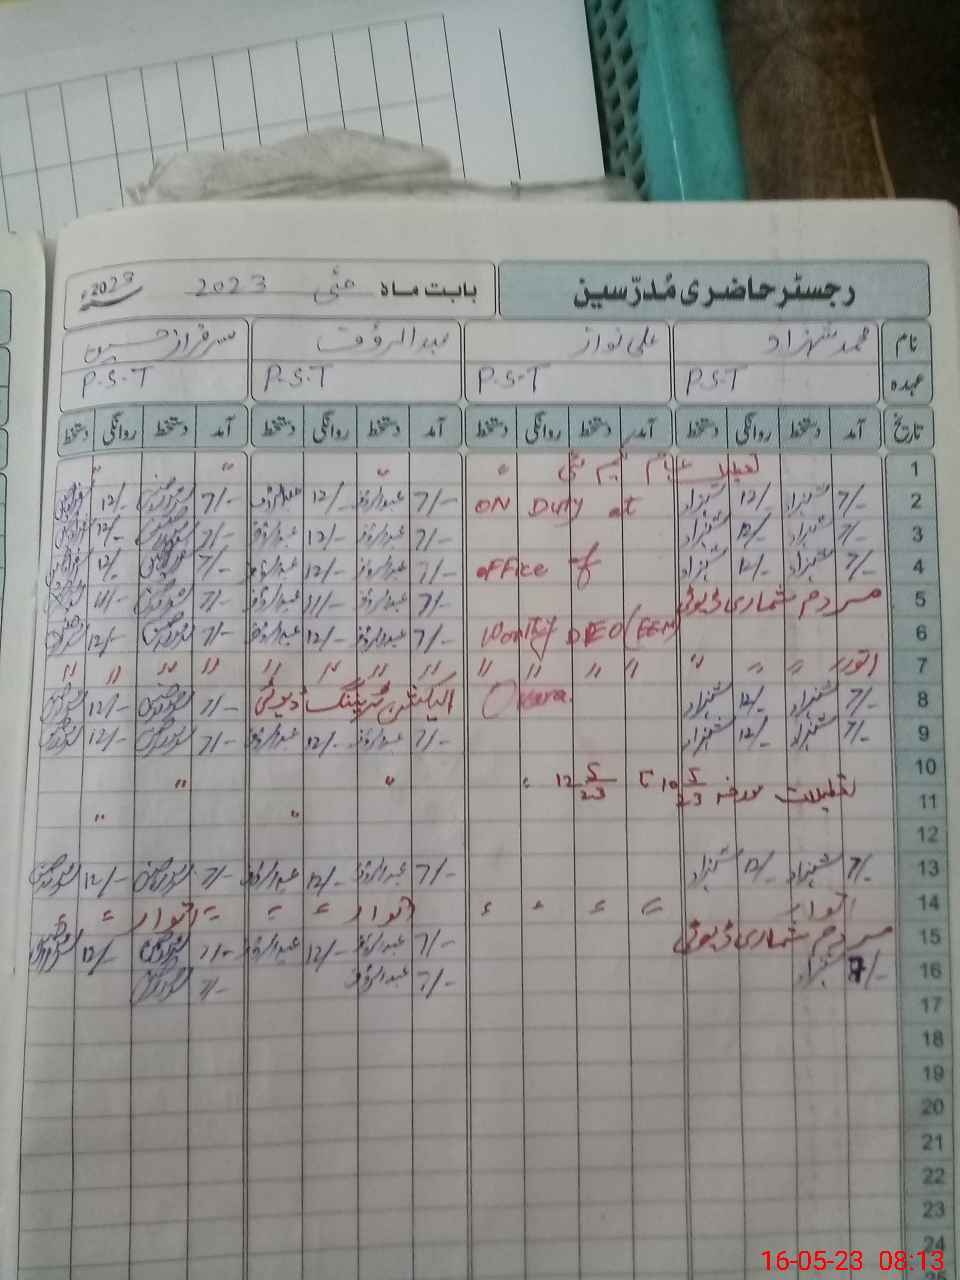 رجسٹر حاضری مُدرّسین
بابت ماہ مئی 2023 2023ء
نام محمد شہزاد علی نواز عبدالرؤف سرفراز حسین
عہدہ P.S.T P.S.T P.S.T P.S.T
تاریخ آمد دستخط روانگی دستخط آمد دستخط روانگی دستخط آمد دستخط روانگی دستخط آمد دستخط روانگی دستخط
1 〃 〃 〃 〃
2 7/- شہزاد 12/- شہزاد ON Duty at 7/- عبدالرؤف 12/- عبدالرؤف 7/- 12/-
3 7/- شہزاد 12/- شہزاد 7/- عبدالرؤف 12/- عبدالرؤف 7/- 12/-
4 7/- شہزاد 12/- شہزاد office of 7/- عبدالرؤف 12/- عبدالرؤف 7/- 12/-
5 مردم شماری ڈیوٹی 7/- عبدالرؤف 11/- عبدالرؤف 7/- 11/-
6 DEO (EEM) 7/- عبدالرؤف 12/- عبدالرؤف 7/- 12/-
7 اتوار 〃 〃 〃 〃 〃 〃 〃 〃 〃 〃 〃 〃 〃 〃 〃
8 7/- شہزاد 12/- شہزاد Okara الیکشن ٹریننگ ڈیوٹی 7/- 12/-
9 7/- شہزاد 12/- شہزاد 7/- عبدالرؤف 12/- عبدالرؤف 7/- 12/-
10 تعطیلات مورخہ 10 5/23 تا 12 5/23 〃 〃 〃
11 〃 〃
12
13 7/- شہزاد 12/- شہزاد 7/- عبدالرؤف 12/- عبدالرؤف 7/- 12/-
14 اتوار 〃 〃 〃 〃 اتوار 〃 〃 〃 اتوار 〃 〃
15 مردم شماری ڈیوٹی 7/- عبدالرؤف 12/- عبدالرؤف 7/- 12/-
16 7/- شہزاد 7/- عبدالرؤف 7/-
17
18
19
20
21
22
23
24
16-05-23 08:13